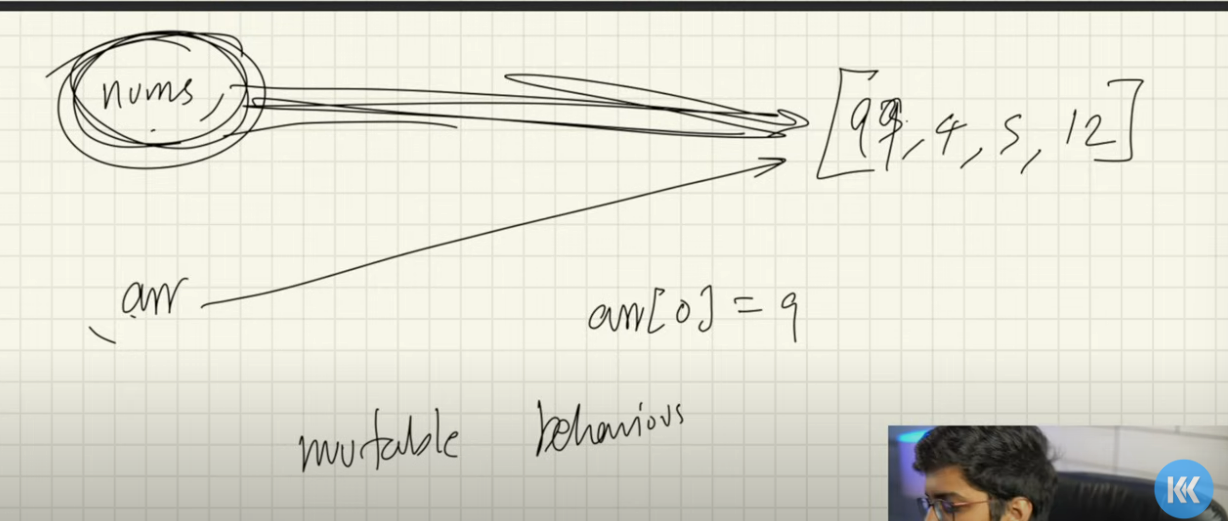 nums
[99, 4, 5, 12]
arr
arr[0] = 9
mutable behavious
KK